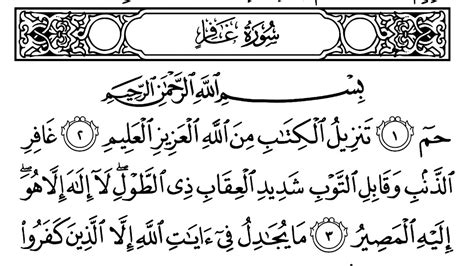 سُورَةُ غَافِرٍ
بِسْمِ ٱللَّهِ ٱلرَّحْمَٰنِ ٱلرَّحِيمِ
حمٓ ١ تَنزِيلُ ٱلْكِتَٰبِ مِنَ ٱللَّهِ ٱلْعَزِيزِ ٱلْعَلِيمِ ٢ غَافِرِ
ٱلذَّنۢبِ وَقَابِلِ ٱلتَّوْبِ شَدِيدِ ٱلْعِقَابِ ذِى ٱلطَّوْلِۖ لَآ إِلَٰهَ إِلَّا هُوَۖ
إِلَيْهِ ٱلْمَصِيرُ ٣ مَا يُجَٰدِلُ فِىٓ ءَايَٰتِ ٱللَّهِ إِلَّا ٱلَّذِينَ كَفَرُوا۟